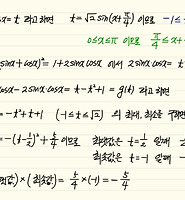 cosx=t 라고 하면 t=√2 sin(x+π/4) 이므로 -1≤
0≤x≤π 이므로 π/4≤x+
(sinx+cosx)²=1+2sinx cosx 에서 2sinx cosx=t
cosx-2sinx cosx=t-t²+1=g(t) 라고 하면
=-t²+t+1 (-1≤t≤√2) 의 최대, 최소를 구하면
=-(t-½)²+5/4 이므로 최댓값은 t=½ 일때
최솟값은 t=-1 일때 -
댓값)×(최솟값)=5/4×(-1)=-5/4